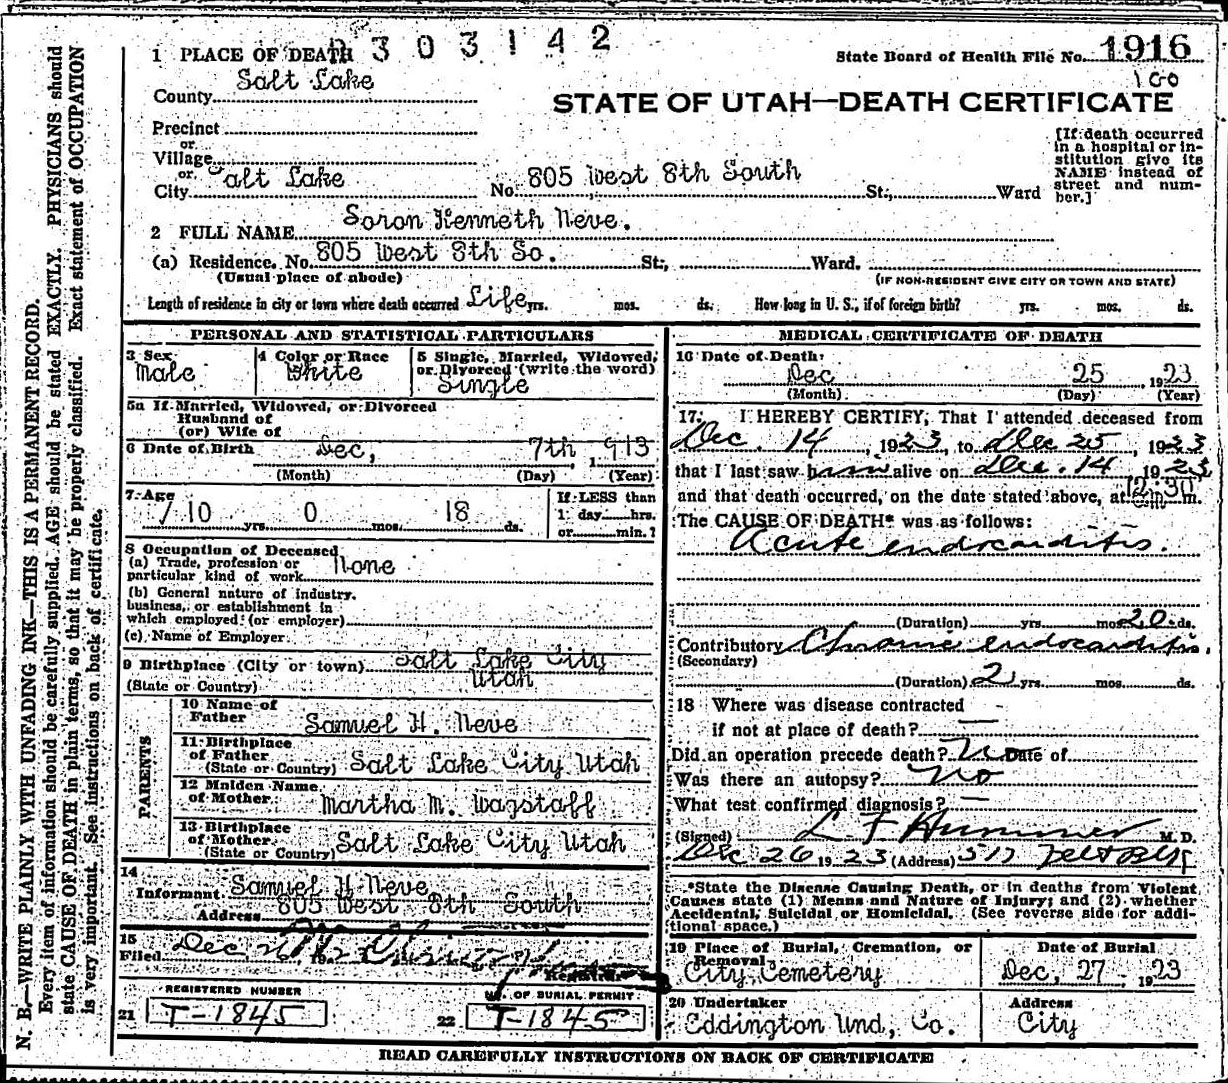 1 PLACE OF DEATH 2303142
State Board of Health File No. 1916
County Salt Lake
160
STATE OF UTAH—DEATH CERTIFICATE
Precinct
or
Village
or
City Salt Lake No. 805 West 8th South St; Ward
[If death occurred
in a hospital or in-
stitution give its
NAME instead of
street and num-
ber.]
2 FULL NAME Soron Kenneth Neve.
(a) Residence. No. 805 West 8th So. St; Ward.
(Usual place of abode) (IF NON-RESIDENT GIVE CITY OR TOWN AND STATE)
Length of residence in city or town where death occurred Life yrs. mos. ds. How long in U. S., if of foreign birth? yrs. mos. ds.
PERSONAL AND STATISTICAL PARTICULARS
3 Sex Male
4 Color or Race White
5 Single, Married, Widowed,
or Divorced (write the word)
Single
5a If Married, Widowed, or Divorced
Husband of
(or) Wife of
6 Date of Birth Dec, 7th, 1913
(Month) (Day) (Year)
7 Age
10 yrs. 0 mos. 18 ds.
If LESS than
1 day hrs.
or min.?
8 Occupation of Deceased
(a) Trade, profession or
particular kind of work None
(b) General nature of industry,
business, or establishment in
which employed (or employer)
(c) Name of Employer
9 Birthplace (City or town) Salt Lake City
(State or Country) Utah
PARENTS
10 Name of
Father Samuel H. Neve
11 Birthplace
of Father
(State or Country) Salt Lake City Utah
12 Maiden Name
of Mother Martha M. Wagstaff
13 Birthplace
of Mother
(State or Country) Salt Lake City Utah
14
Informant Samuel H Neve
Address 805 West 8th South
15
Filed Dec
Registrar
REGISTERED NUMBER
21 T-1845
NO. OF BURIAL PERMIT
22 T-1845
MEDICAL CERTIFICATE OF DEATH
16 Date of Death
Dec 25, 1923
(Month) (Day) (Year)
17. I HEREBY CERTIFY, That I attended deceased from
Dec. 14, 1923, to Dec 25, 1923
that I last saw him alive on Dec. 14 1923
and that death occurred, on the date stated above, at 12:30 m.
The CAUSE OF DEATH* was as follows:
Acute endocarditis.
(Duration) yrs. mos. 20 ds.
Contributory Chronic endocarditis.
(Secondary)
(Duration) 2 yrs. mos. ds.
18 Where was disease contracted
if not at place of death? —
Did an operation precede death? No Date of
Was there an autopsy? No
What test confirmed diagnosis? —
(Signed) L F Hummer M. D.
Dec 26 1923 (Address) 517
*State the Disease Causing Death, or in deaths from Violent
Causes state (1) Means and Nature of Injury; and (2) whether
Accidental, Suicidal or Homicidal. (See reverse side for addi-
tional space.)
19 Place of Burial, Cremation, or
Removal
City Cemetery
Date of Burial
Dec, 27, 1923
20 Undertaker
Eddington Und, Co.
Address
City
READ CAREFULLY INSTRUCTIONS ON BACK OF CERTIFICATE
N. B.—WRITE PLAINLY WITH UNFADING INK—THIS IS A PERMANENT RECORD.
Every item of information should be carefully supplied. AGE should be stated EXACTLY. PHYSICIANS should
state CAUSE OF DEATH in plain terms, so that it may be properly classified. Exact statement of OCCUPATION
is very important. See instructions on back of certificate.